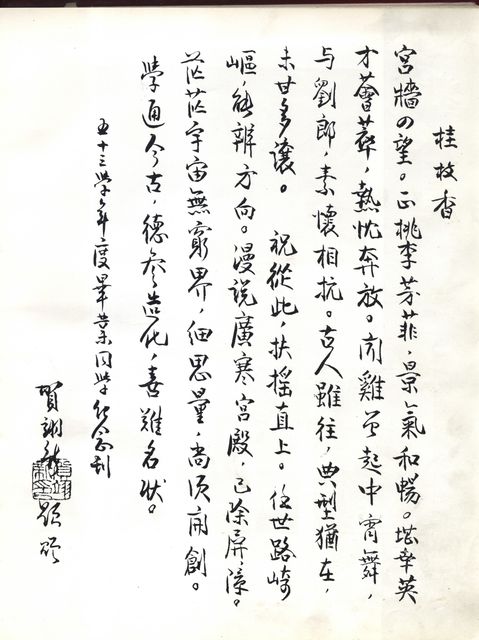 桂枝香
宮牆之望。正桃李芳菲，景氣和暢。堪幸英
才薈萃，熱忱奔放。聞雞曾起中宵舞，
与劉郎，素懷相抗。古人雖往，典型猶在，
未甘多讓。　祝從此，扶搖直上。任世路崎
嶇，能辨方向。漫说廣寒宮殿，已除屏障。
茫茫宇宙無窮界，細思量，尚須開創。
學通今古，德參造化，喜難名狀。
五十三學年度畢業同學紀念刊
賀翊新 題